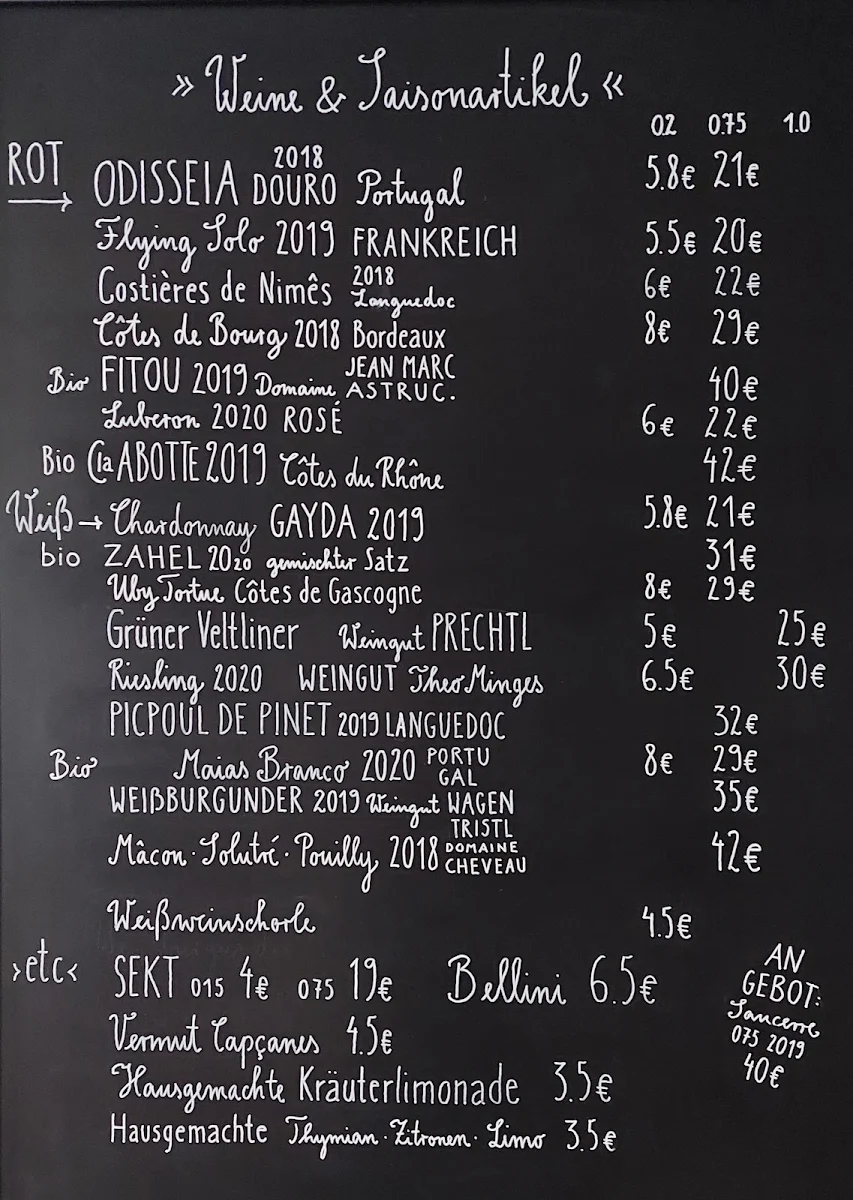 » Weine & Saisonartikel «
0.2 0.75 1.0
ROT → ODISSEIA 2018 DOURO Portugal 5.8€ 21€
Flying Solo 2019 FRANKREICH 5.5€ 20€
Costières de Nimês 2018 Languedoc 6€ 22€
Côtes de Bourg 2018 Bordeaux 8€ 29€
Bio FITOU 2019 Domaine JEAN MARC ASTRUC. 40€
Luberon 2020 ROSÉ 6€ 22€
Bio Cla ABOTTE 2019 Côtes du Rhône 42€
Weiß → Chardonnay GAYDA 2019 5.8€ 21€
bio ZAHEL 2020 gemischter Satz 31€
Uby Tortue Côtes de Gascogne 8€ 29€
Grüner Veltliner Weingut PRECHTL 5€ 25€
Riesling 2020 WEINGUT Theo Minges 6.5€ 30€
PICPOUL DE PINET 2019 LANGUEDOC 32€
Bio Maias Branco 2020 PORTU GAL 8€ 29€
WEIßBURGUNDER 2019 Weingut WAGEN TRISTL 35€
Mâcon · Solutré · Pouilly 2018 DOMAINE CHEVEAU 42€
Weißweinschorle 4.5€
›etc‹ SEKT 015 4€ 075 19€ Bellini 6.5€
Vermut Capçanes 4.5€
Hausgemachte Kräuterlimonade 3.5€
Hausgemachte Thymian · Zitronen · Limo 3.5€
AN
GEBOT:
Sancerre
075 2019
40€